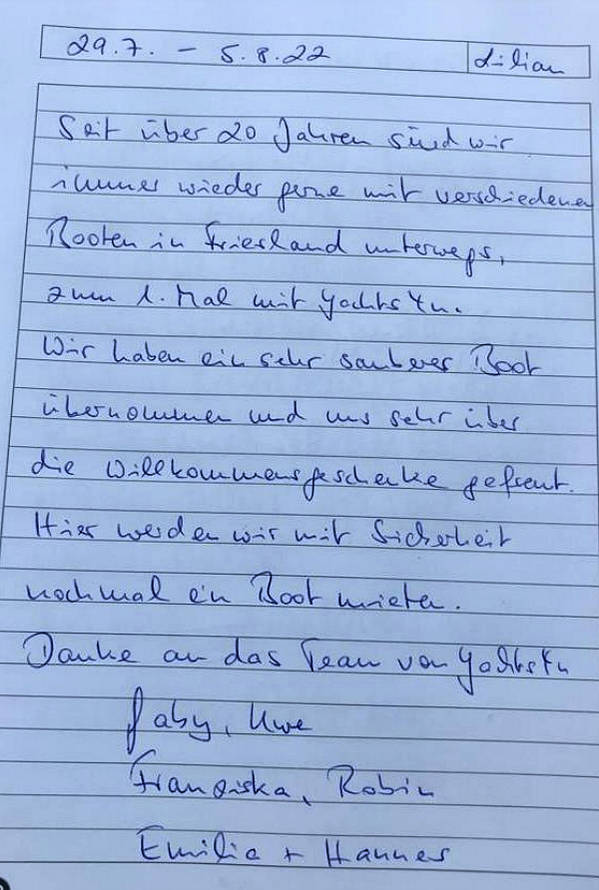 29.7. – 5.8.22 Lilian
Seit über 20 Jahren sind wir
immer wieder gerne mit verschiedenen
Booten in Friesland unterwegs,
zum 1. Mal mit Yachts4u.
Wir haben ein sehr sauberes Boot
übernommen und uns sehr über
die Willkommensgeschenke gefreut.
Hier werden wir mit Sicherheit
nochmal ein Boot mieten.
Danke an das Team von Yachts4u
Gaby, Uwe
Franziska, Robin
Emilia + Hannes